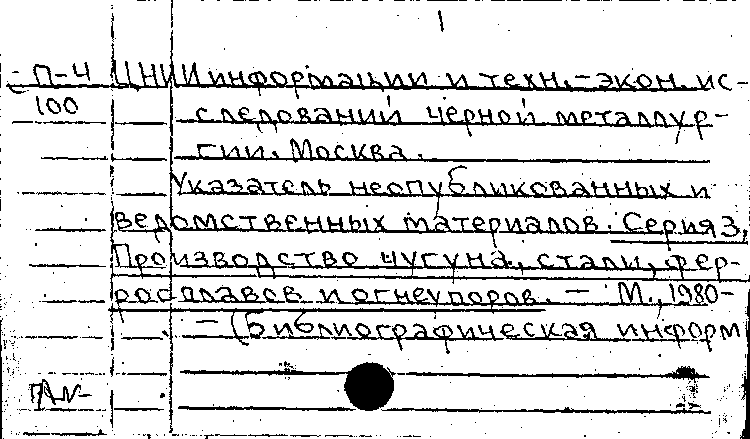 1
П-4 ЦНИИ информации и техн.-экон. ис-
100 следований черной металлур-
гии. Москва.
Указатель неопубликованных и
ведомственных материалов. Серия 3,
Производство чугуна, стали, фер-
росплавов и огнеупоров. — М., 1980-
— (Библиографическая информ